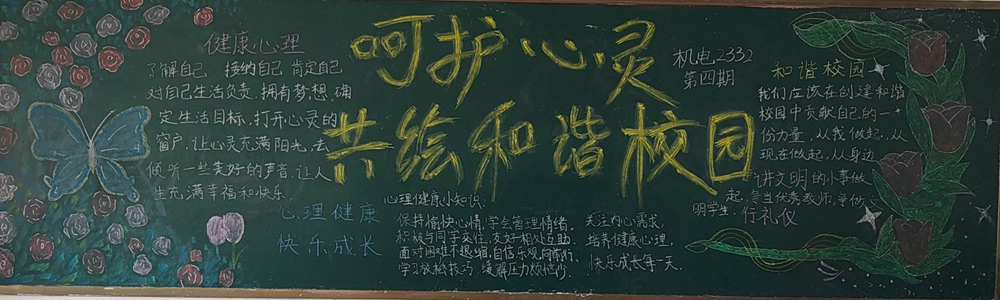 呵护心灵
共绘和谐校园
机电2332
第四期
健康心理
了解自己 接纳自己 肯定自己
对自己生活负责,拥有梦想,确
定生活目标,打开心灵的
窗户,让心灵充满阳光,去
倾听一些美好的声音,让人
生充满幸福和快乐.
心理健康
快乐成长
心理健康小知识:
保持愉快心情,学会管理情绪.
积极与同学交往,友好相处互助.
面对困难不退缩,自信乐观向前行.
学习放松技巧,缓解压力烦恼少.
关注内心需求,
培养健康心理,
快乐成长每一天.
和谐校园
我们应该在创建和谐
校园中贡献自己的一
份力量,从我做起,从
现在做起,从身边
讲文明的小事做
起,争当优秀教师,争做文
明学生.行礼仪